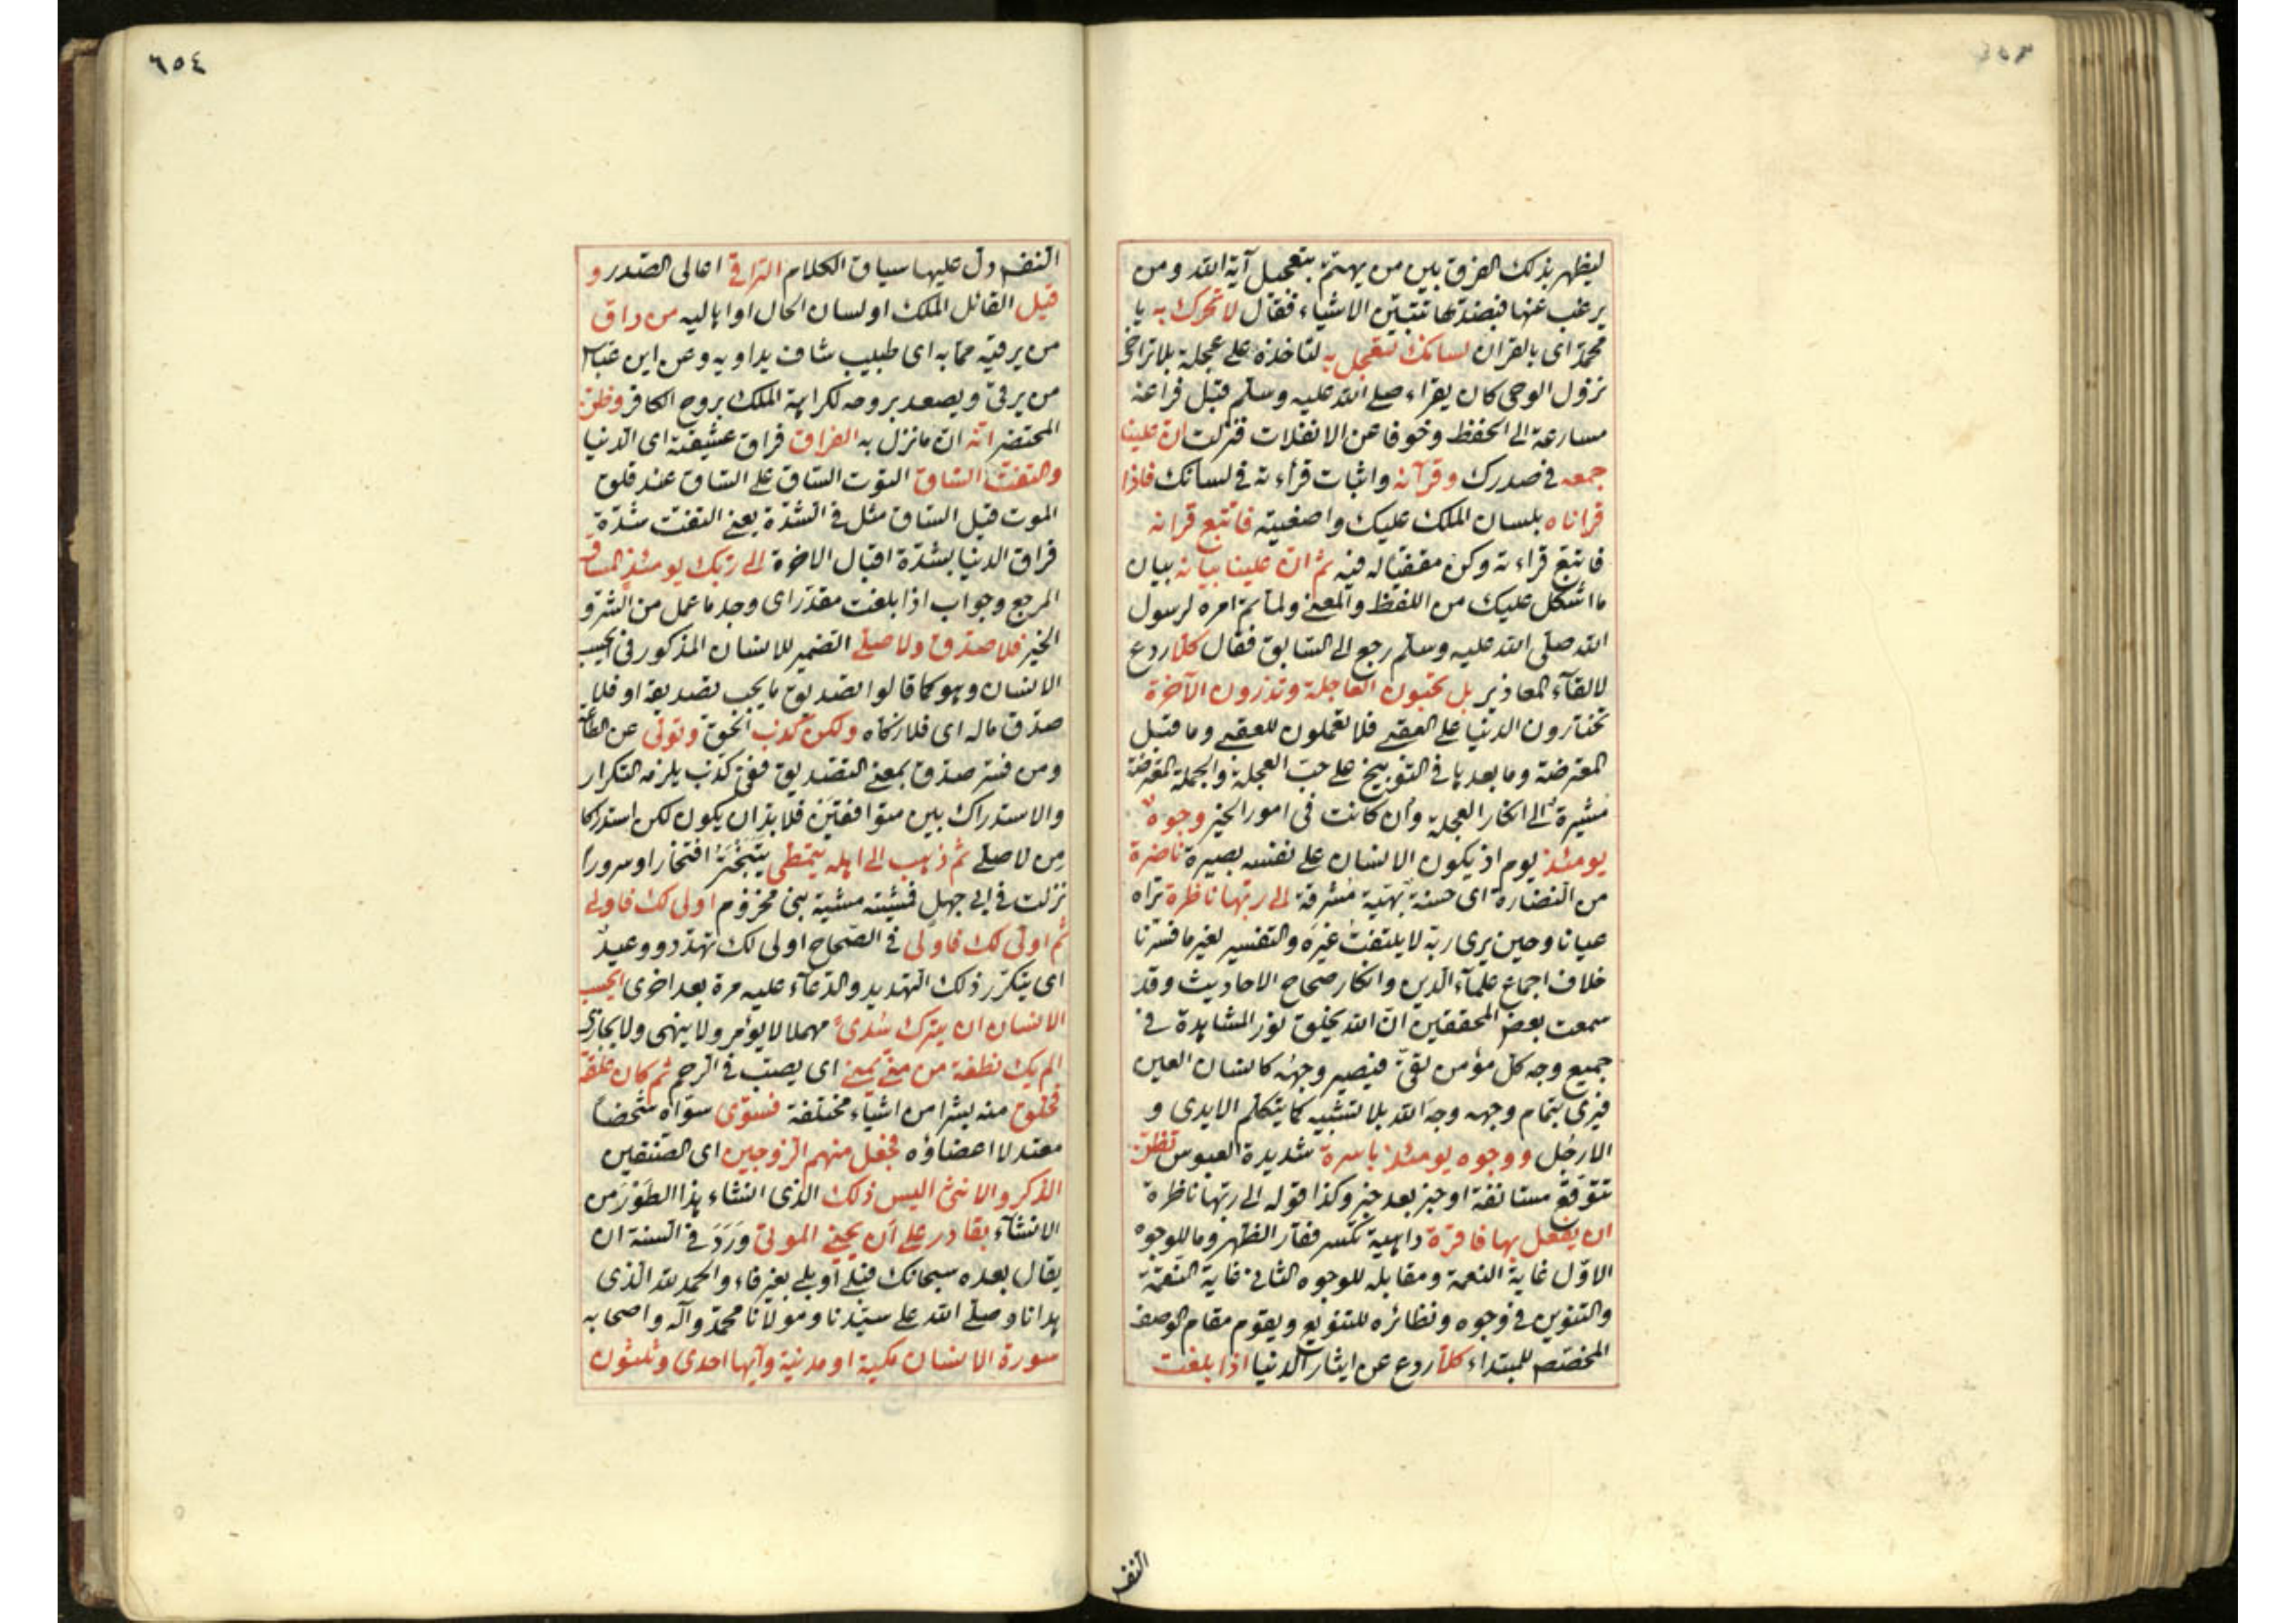 ليظهر بذلك الفرق بين من يهتم بتعجيل آية الله ومن
يرغب عنها فبضدها تتبين الاشياء فقال لا تحرك به يا
محمد اى بالقران لسانك لتعجل به لتاخذه على عجلة بلا تراخى
نزول الوحى كان يقراء صلى الله عليه وسلم قبل فراغه
مسارعة الى الحفظ وخوفا عن الانفلات فنزلت ان علينا
جمعه فى صدرك وقرآنه واثبات قراءته فى لسانك فاذا
قراناه بلسان الملك عليك واصغيته فاتبع قرانه
فاتبع قراءته وكن مقفيا له فيه ثم ان علينا بيانه بيان
ما اشكل عليك من اللفظ والمعنى ولما تم امره لرسول
الله صلى الله عليه وسلم رجع الى السابق فقال كلا ردع
لالقآء المعاذير بل تحبون العاجلة وتذرون الآخرة
تختارون الدنيا على العقبى فلا تعملون للعقبى وما قبل
المعترضة وما بعدها فى التوبيخ على حب العجلة والجملة المعترضة
مشيرة الى انكار العجلة وان كانت فى امور الخير وجوه
يومئذ يوم اذ يكون الانسان على نفسه بصيرة ناضرة
من النضارة اى حسنة بهية مشرقة الى ربها ناظرة تراه
عيانا وحين يرى ربه لا يلتفت غيره والتفسير لغير ما فسرنا
خلاف اجماع علمآء الدين وانكار صحاح الاحاديث وقد
سمعت بعض المحققين ان الله يخلق نور المشاهدة فى
جميع وجه كل مؤمن تقى فيصير وجهه كانسان العين
فيرى بتمام وجهه وجه الله بلا تشبيه كما يتكلم الايدى و
الارجل ووجوه يومئذ باسرة شديدة العبوس تظن
تتوقع مستانفة او خبر بعد خبر وكذا قوله الى ربها ناظرة
ان يفعل بها فاقرة داهية تكسر فقار الظهر وما للوجوه
الاول غاية النعمة ومقابله للوجوه الثانى غاية النقمة
والتنوين فى وجوه ونظائره للتنويع ويقوم مقام الوصف
المخصص للمبتداء كلا ردع عن ايثار الدنيا اذا بلغت
النفس
٦٥٤
النفس دل عليها سياق الكلام التراقى اعالى الصدر و
قيل القائل الملك او لسان الحال او اهاليه من راق
من يرقيه مما به اى طبيب شاف يداويه وعن ابن عباس
من يرقى ويصعد بروحه لكراهة الملك بروح الكافر وظن
المحتضر انه ان ما نزل به الفراق فراق عشيقته اى الدنيا
والتفت الساق التوت الساق على الساق عند قلق
الموت قيل الساق مثل فى الشدة يعنى التفت شدة
فراق الدنيا بشدة اقبال الاخرة الى ربك يومئذ المساق
المرجع وجواب اذا بلغت مقدر اى وجد ما عمل من الشر و
الخير فلا صدق ولا صلى الضمير للانسان المذكور فى ايحسب
الانسان وهو كما قالوا تصديق ما يجب تصديقه او فلا
صدق ماله اى فلا زكاه ولكن كذب الحق وتولى عن الطاعة
ومن فسر صدق بمعنى التصديق ففى كذب يلزمه التكرار
والاستدراك بين متوافقين فلا بد ان يكون لكن استدراكا
من لا صلى ثم ذهب الى اهله يتمطى يتبختر افتخارا وسرورا
نزلت فى ابى جهل مشية بنى مخزوم اولى لك فاولى
ثم اولى لك فاولى فى الصحاح اولى لك تهدد ووعيد
اى يتكرر ذلك التهديد والدعآء عليه مرة بعد اخرى ايحسب
الانسان ان يترك سدى مهملا لا يؤمر ولا ينهى ولا يجازى
الم يك نطفة من منى يمنى اى يصب فى الرحم ثم كان علقة
فخلق منه بشرا من اشيآء مختلفة فسوى سواه شخصا
معتدلا اعضاؤه فجعل منهم الزوجين اى الصنفين
الذكر والانثى اليس ذلك الذى انشاء هذا الطور من
الانشآء بقادر على ان يحيى الموتى ورد فى السنة ان
يقال بعده سبحانك فبلى او بلى بغير فاء والحمد لله الذى
هدانا وصلى الله على سيدنا ومولانا محمد وآله واصحابه
سورة الانسان مكية او مدنية وآيها احدى وثلثون